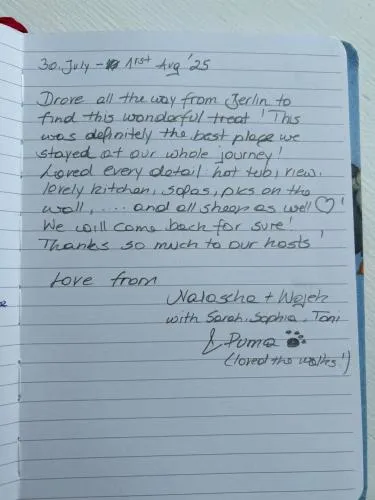 30. July - 1rst Aug '25
Drove all the way from Berlin to
find this wonderful treat! This
was definitely the best place we
stayed at our whole journey!
Loved every detail: hot tub, view,
lovely kitchen, sofas, pics on the
wall, .... and all sheep as well ♡!
We will come back for sure!
Thanks so much to our hosts!
Love from
Natascha + Wojtek
with Sarah, Sophia, Toni
& Puma
(loved the walks!)